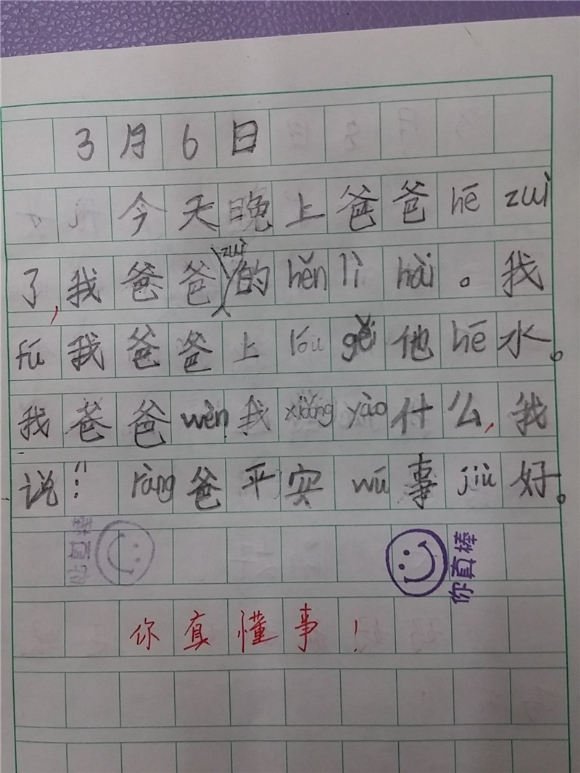 3月6日
今天晚上爸爸hē zuì
了,我爸爸zuì的hěn lì hài。我
fú我爸爸上lóu gěi他hē水。
我爸爸wèn我xiǎng yào什么,我
说:“ràng爸平安wú事jiù好。
你真棒
你真懂事!